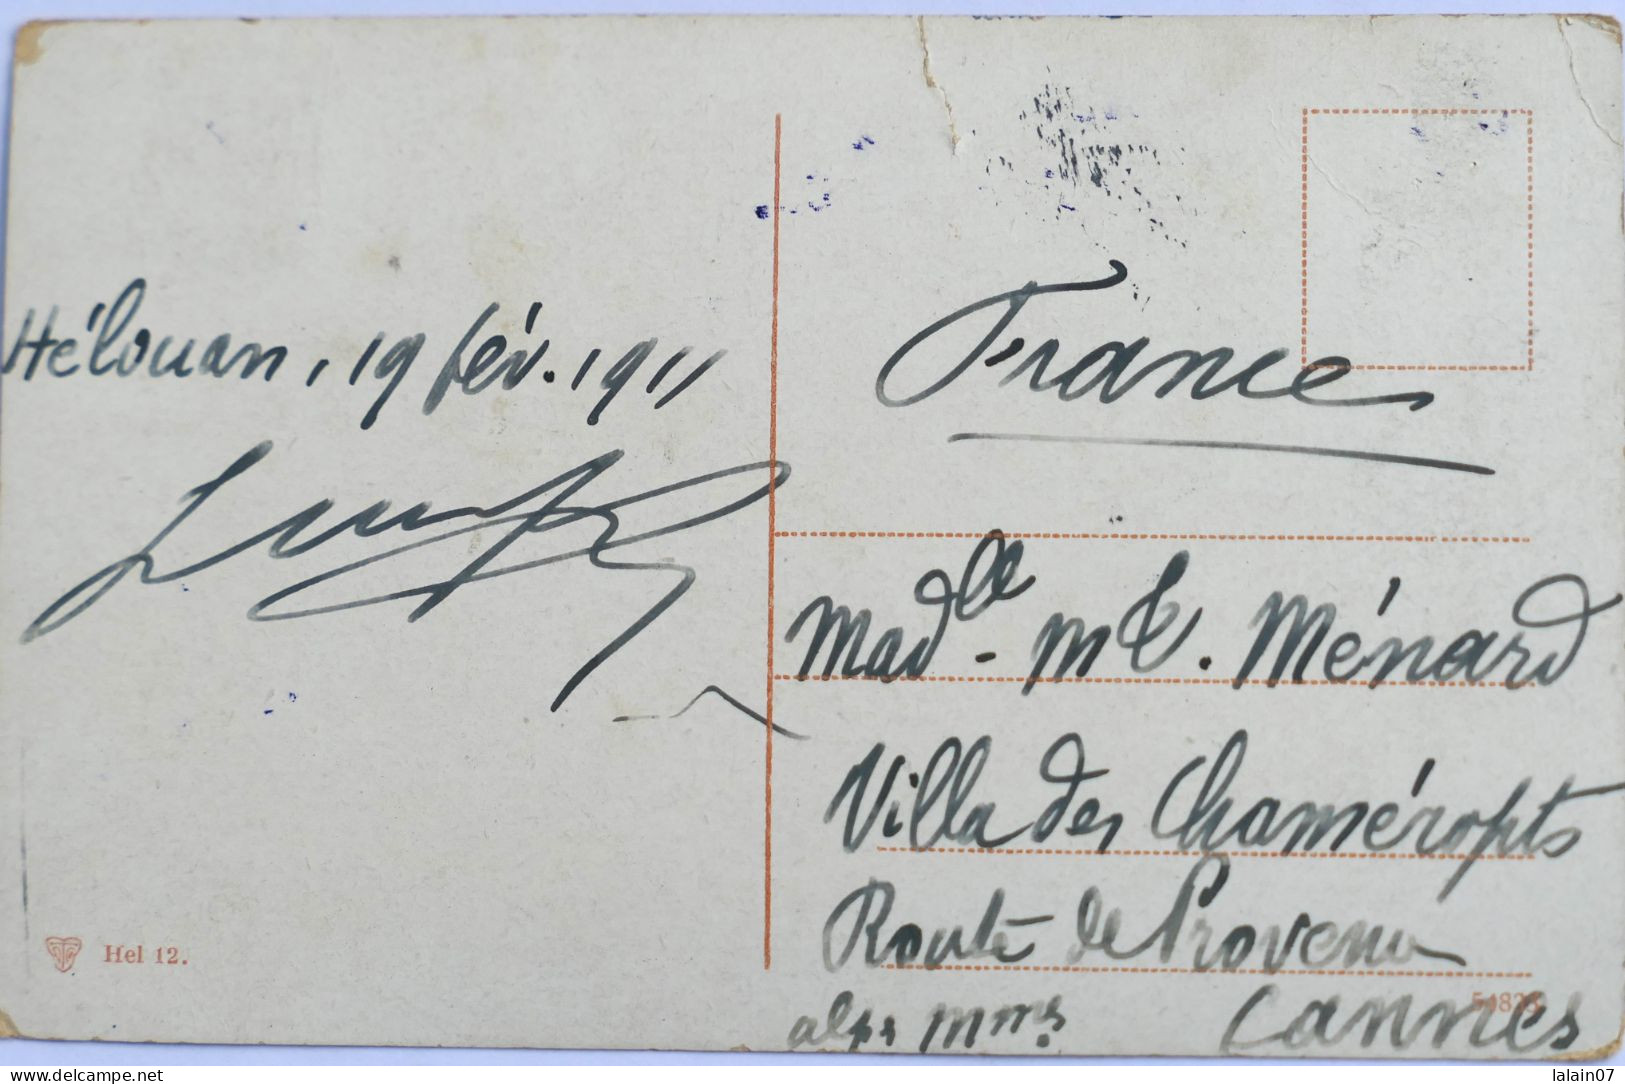 Hélouan, 19 fév. 1911
Hel 12.
France
Mad^lle - M E. Ménard
Villa des Chaméropts
Route de Provence
alpes Mmes. Cannes
54838
www.delcampe.net
lalain07